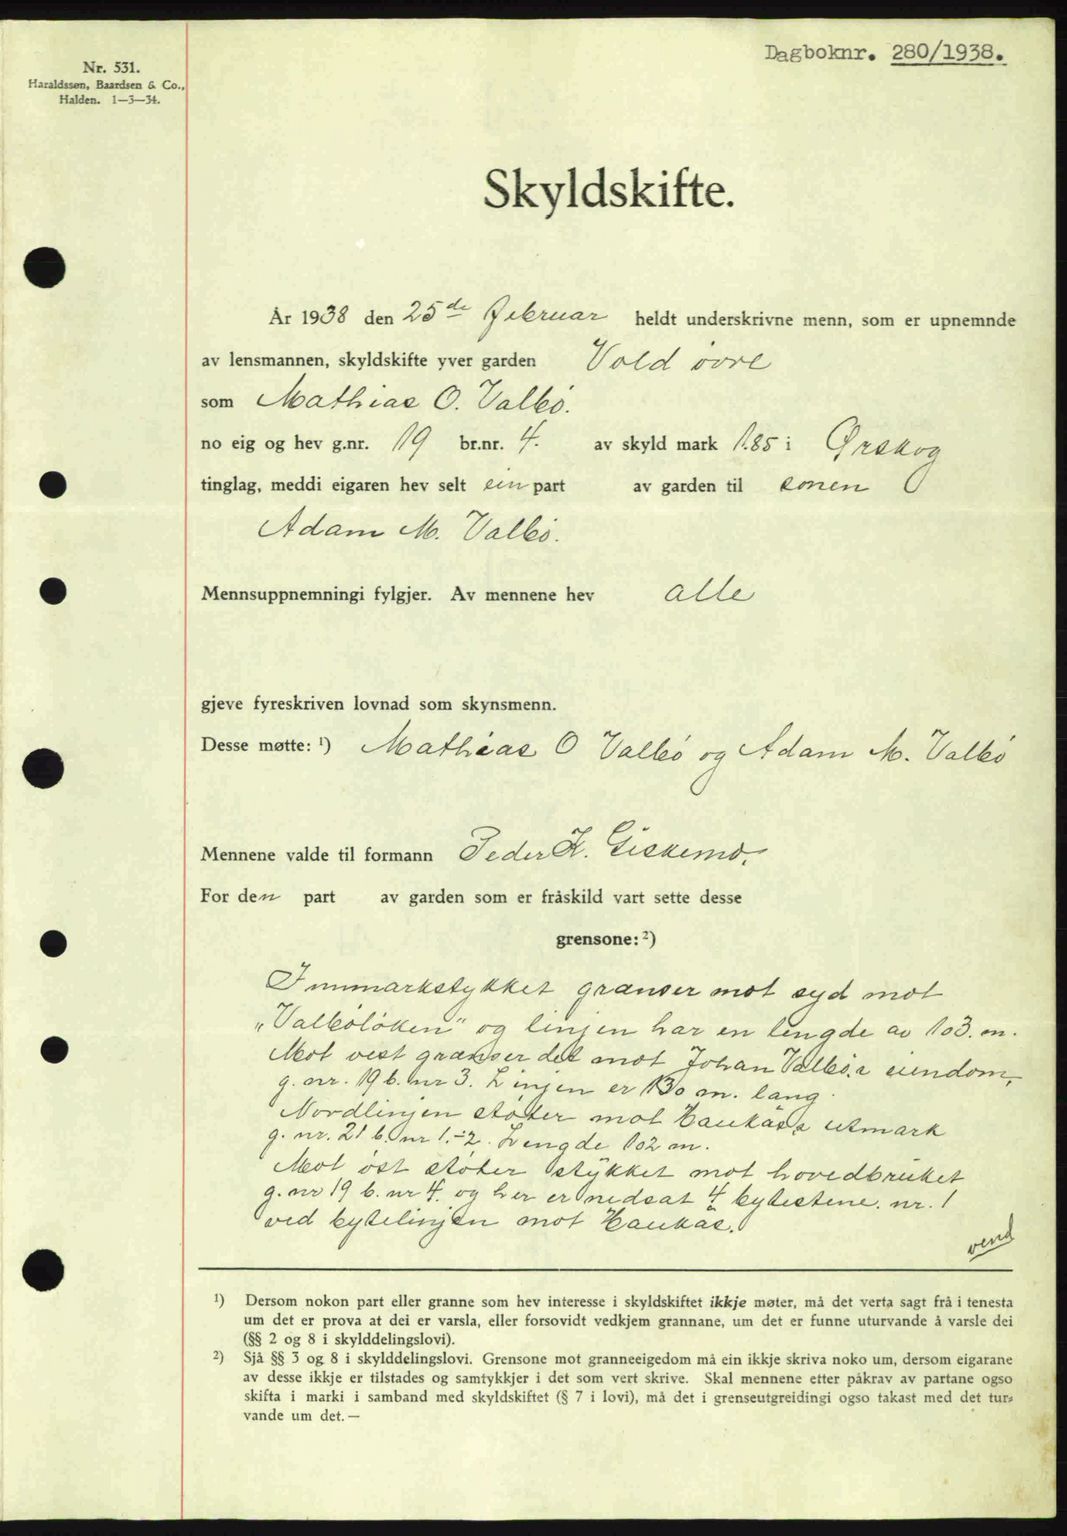 Nr. 531.
Haraldssøn, Baardsen & Co.,
Halden. 1—3—34.
Dagboknr. 280/1938.
Skyldskifte.
År 1938 den 25de februar heldt underskrivne menn, som er upnemnde
av lensmannen, skyldskifte yver garden Vold øvre
som Mathias O. Valbø.
no eig og hev g.nr. 19 br.nr. 4. av skyld mark 1.85 i Ørskog
tinglag, meddi eigaren hev selt ein part av garden til sonen
Adam M. Valbø.
Mennsuppnemningi fylgjer. Av mennene hev alle
gjeve fyreskriven lovnad som skynsmenn.
Desse møtte: ¹) Mathias O Valbø og Adam M. Valbø
Mennene valde til formann Peder K. Giskemo.
For den part av garden som er fråskild vart sette desse
grensone: ²)
Innmarkstykket grænser mot syd mot
„Valbøløken" og linjen har en lengde av 103. m.
Mot vest grænser det mot Johan Valbø.s eiendom,
g. nr. 19 b. nr 3. Linjen er 130 m. lang.
Nordlinjen støter mot Haukås,s utmark
g. nr. 21 b. nr 1.-2. Lengde 102 m.
Mot øst støter stykket mot hovedbruket
g. nr 19 b. nr 4. og her er nedsat 4 bytestene. nr. 1
ved bytelinjen mot Haukås.
vend
¹) Dersom nokon part eller granne som hev interesse i skyldskiftet ikkje møter, må det verta sagt frå i tenesta
um det er prova at dei er varsla, eller forsovidt vedkjem grannane, um det er funne uturvande å varsle dei
(§§ 2 og 8 i skylddelingslovi).
²) Sjå §§ 3 og 8 i skylddelingslovi. Grensone mot granneeigedom må ein ikkje skriva noko um, dersom eigarane
av desse ikkje er tilstades og samtykkjer i det som vert skrive. Skal mennene etter påkrav av partane ogso
skifta i marki i samband med skyldskiftet (§ 7 i lovi), må det i grenseutgreidingi ogso takast med det tur-
vande um det.—